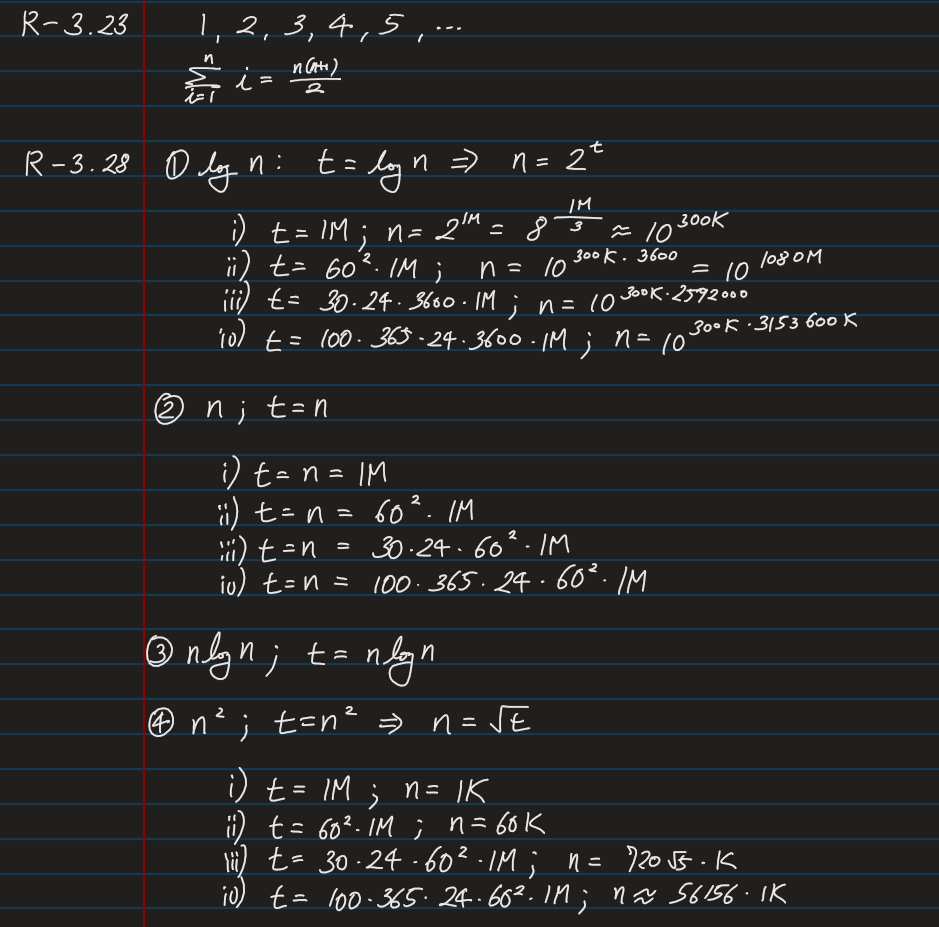 R-3.23 1, 2, 3, 4, 5, ...
∑_{i=1}^{n} i = n(n+1)/2
R-3.28 ① log n : t = log n ⇒ n = 2^t
i) t = 1M ; n = 2^{1M} = 8^{1M/3} ≈ 10^{300K}
ii) t = 60² · 1M ; n = 10^{300K · 3600} = 10^{1080M}
iii) t = 30 · 24 · 3600 · 1M ; n = 10^{300K · 2592000}
iv) t = 100 · 365 · 24 · 3600 · 1M ; n = 10^{300K · 3153600K}
② n ; t = n
i) t = n = 1M
ii) t = n = 60² · 1M
iii) t = n = 30 · 24 · 60² · 1M
iv) t = n = 100 · 365 · 24 · 60² · 1M
③ n log n ; t = n log n
④ n² ; t = n² ⇒ n = √t
i) t = 1M ; n = 1K
ii) t = 60² · 1M ; n = 60K
iii) t = 30 · 24 · 60² · 1M ; n = 720√5 · K
iv) t = 100 · 365 · 24 · 60² · 1M ; n ≈ 56156 · 1K